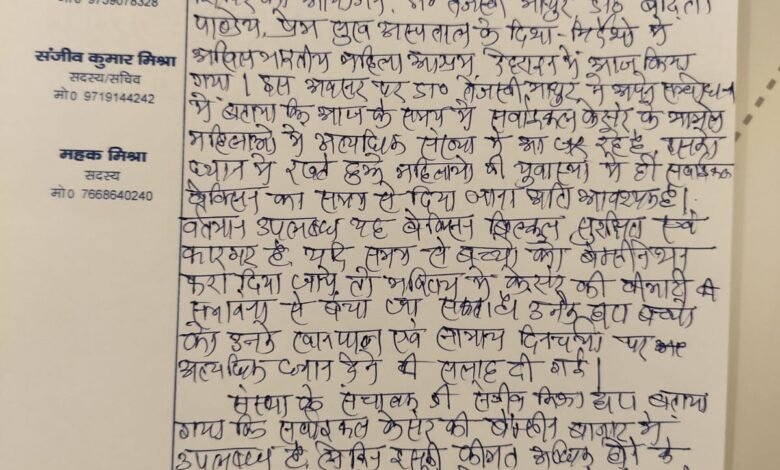 मो0 9759078328
संजीव कुमार मिश्रा
सदस्य/सचिव
मो0 9719144242
महक मिश्रा
सदस्य
मो0 7668640240
पाण्डेय, प्रेम सुख अस्पताल के दिशा-निर्देशो में
अखिल भारतीय महिला आश्रम देहरादून में आज किया
गया। इस अवसर पर डा० तेजस्वी माथुर ने अपने सम्बोधन
में बताया कि आज के समय में सर्वाइकल केंसर के मामले
महिलाओ मे अत्यधिक संख्या में आ रहे है, इसको
ध्यान मे रखते हुऐ महिलाओ की युवावस्था में ही सर्वाइकल
वैक्सिन का समय से दिया जाना अति आवश्यक है।
वर्तमान उपलब्ध यह वैक्सिन बिल्कुल सुरक्षित एवं
कारगर है, यदि समय से बच्चो को वैक्सीनेशन
करा दिया जाये तो भविष्य मे केंसर की बीमारी की
सम्भावना से बचा जा सकता है उनके द्वारा बच्चो
को उनके खानपान एवं सामान्य दिनचर्या पर
अत्यधिक ध्यान देने की सलाह दी गई।
संस्था के संचालक श्री संजीव मिश्रा द्वारा बताया
गया कि सर्वाइकल केंसर की वैक्सीन बाजार में
उपलब्ध है, लेकिन इसकी कीमत अधिक होने के